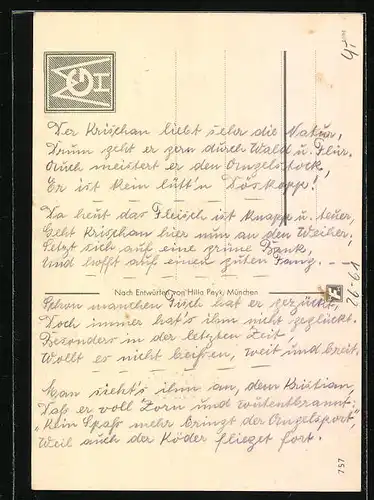 Der Krischan liebt sehr die Natur,
Drum geht er gern durch Wald u. Flur.
Auch meistert er den Angelstock,
Er ist kein lütt'n Döskopp!
Da heut das Fleisch ist knapp u. teuer,
Geht Krischan hier nun an den Weiher.
Setzt sich auf eine grüne Bank,
Und hofft auf einen guten Fang. —
Nach Entwürfen von Hilla Peyk, München
Schon manchen Fisch hat er gezückt,
Doch immer hat's ihm nicht geglückt.
Besonders in der letzten Zeit,
Wollt es nicht beißen, weit und breit.
Man sieht's ihm an, dem Kristian,
Daß er voll Zorn und wutentbrannt:
"Kein Spaß mehr bringt der Angelsport,"
Weil auch der Köder flieget fort.
757